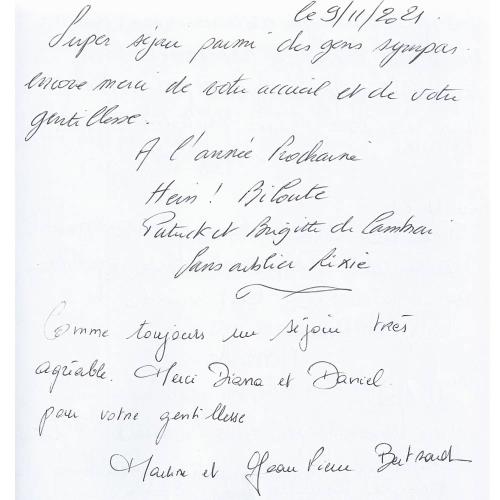 le 9/11/2021.
Super séjour parmi des gens sympas.
encore merci de votre accueil et de votre
gentillesse.
A l'année Prochaine
Hein ! Biloute
Patrick et Brigitte de Cambrai
Sans oublier Rixie
Comme toujours un séjour très
agréable. Merci Diana et Daniel.
pour votre gentillesse
Martine et Jean Pierre Bertrand